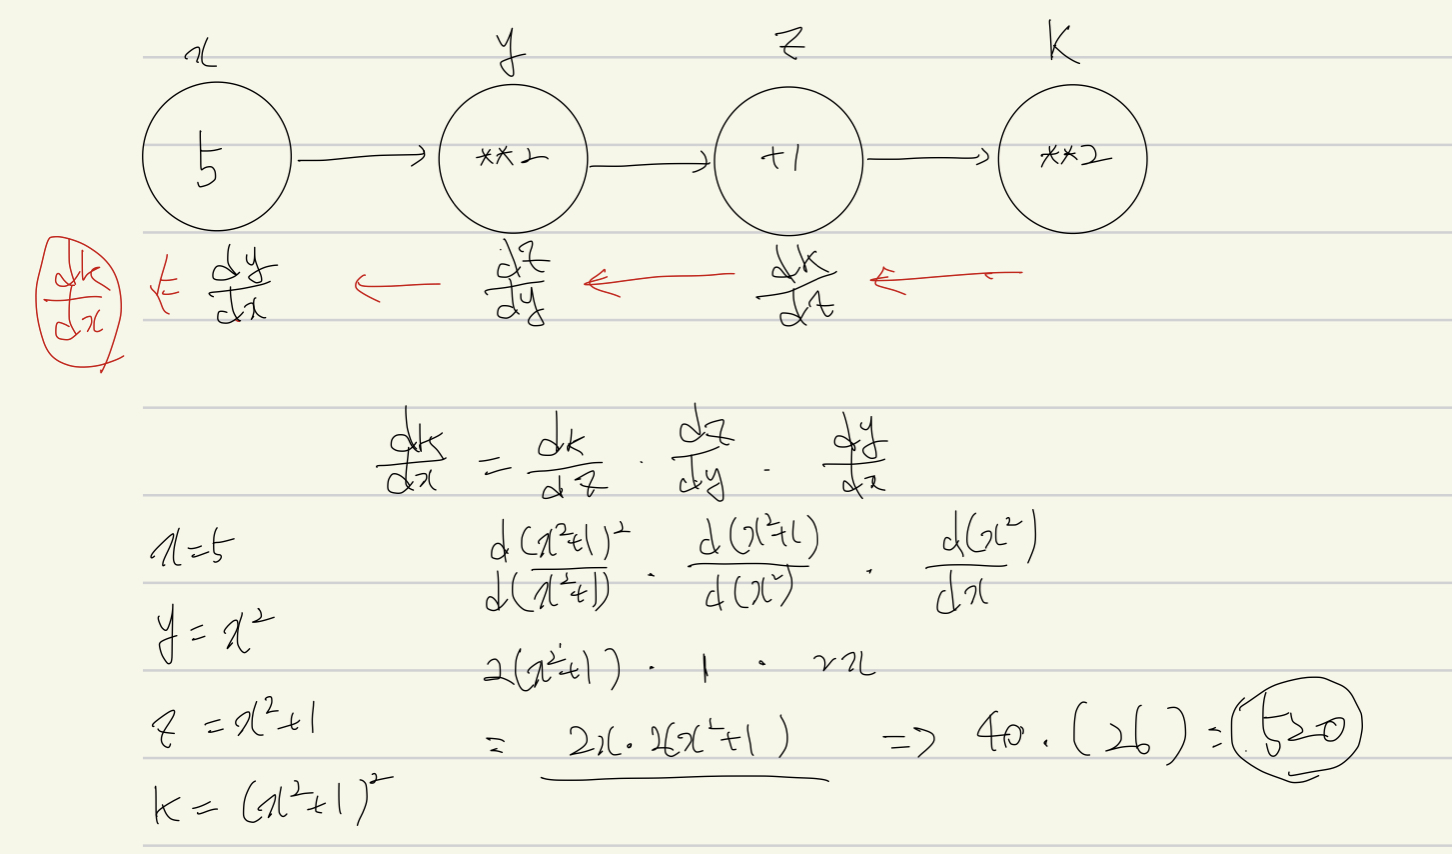 x y z k
5 → **2 → +1 → **2
dk/dx ← dy/dx ← dz/dy ← dk/dz ←
dk/dx = dk/dz · dz/dy · dy/dx
x=5
d(x²+1)²/d(x²+1) · d(x²+1)/d(x²) · d(x²)/dx
y = x²
2(x²+1) · 1 · 2x
z = x²+1
= 2x·2(x²+1) => 40·(26) = 520
k = (x²+1)²